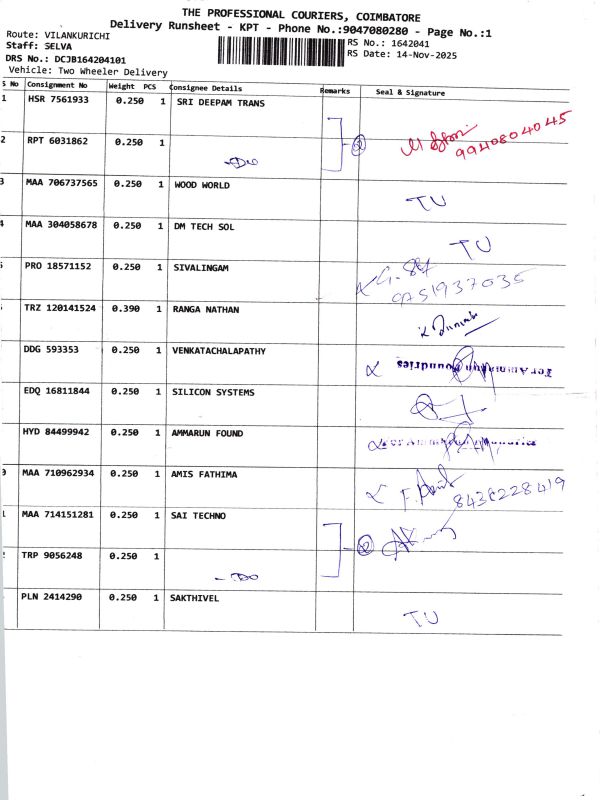 THE PROFESSIONAL COURIERS, COIMBATORE
Delivery Runsheet - KPT - Phone No.:9047080280 - Page No.:1
Route: VILANKURICHI
Staff: SELVA
RS No.: 1642041
DRS No.: DCJB164204101
RS Date: 14-Nov-2025
Vehicle: Two Wheeler Delivery
S No Consignment No Weight PCS Consignee Details Remarks Seal & Signature
1 HSR 7561933 0.250 1 SRI DEEPAM TRANS
9940804045
2 RPT 6031862 0.250 1 -Do
3 MAA 706737565 0.250 1 WOOD WORLD TU
4 MAA 304058678 0.250 1 DM TECH SOL TU
PRO 18571152 0.250 1 SIVALINGAM
9751937035
TRZ 120141524 0.390 1 RANGA NATHAN
DDG 593353 0.250 1 VENKATACHALAPATHY
EDQ 16811844 0.250 1 SILICON SYSTEMS
HYD 84499942 0.250 1 AMMARUN FOUND
MAA 710962934 0.250 1 AMIS FATHIMA
8436228419
MAA 714151281 0.250 1 SAI TECHNO
TRP 9056248 0.250 1 -Do
PLN 2414290 0.250 1 SAKTHIVEL TU